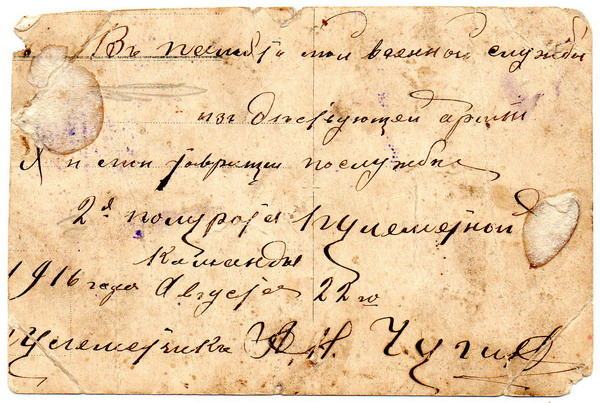 Въ память моей военной службы
изъ действующей армiи
Я и мои товарищи по службе
2я полурота пулеметной
команды
1916 года Августа 22го
пулеметчикъ